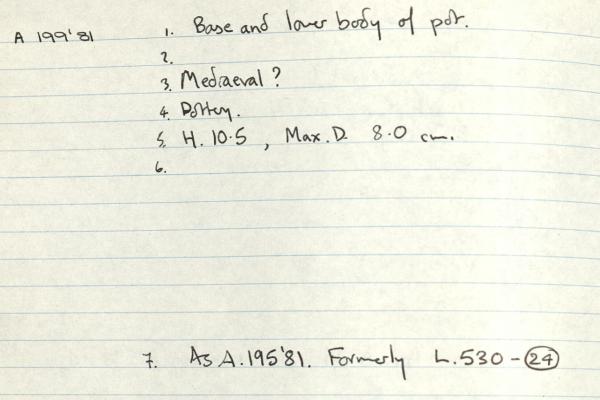 A 199'81 1. Base and lower body of pot.
2.
3. Mediaeval ?
4. Pottery.
5. H. 10.5 , Max. D. 8.0 cm.
6.
7. As A.195'81. Formerly L.530 - 24